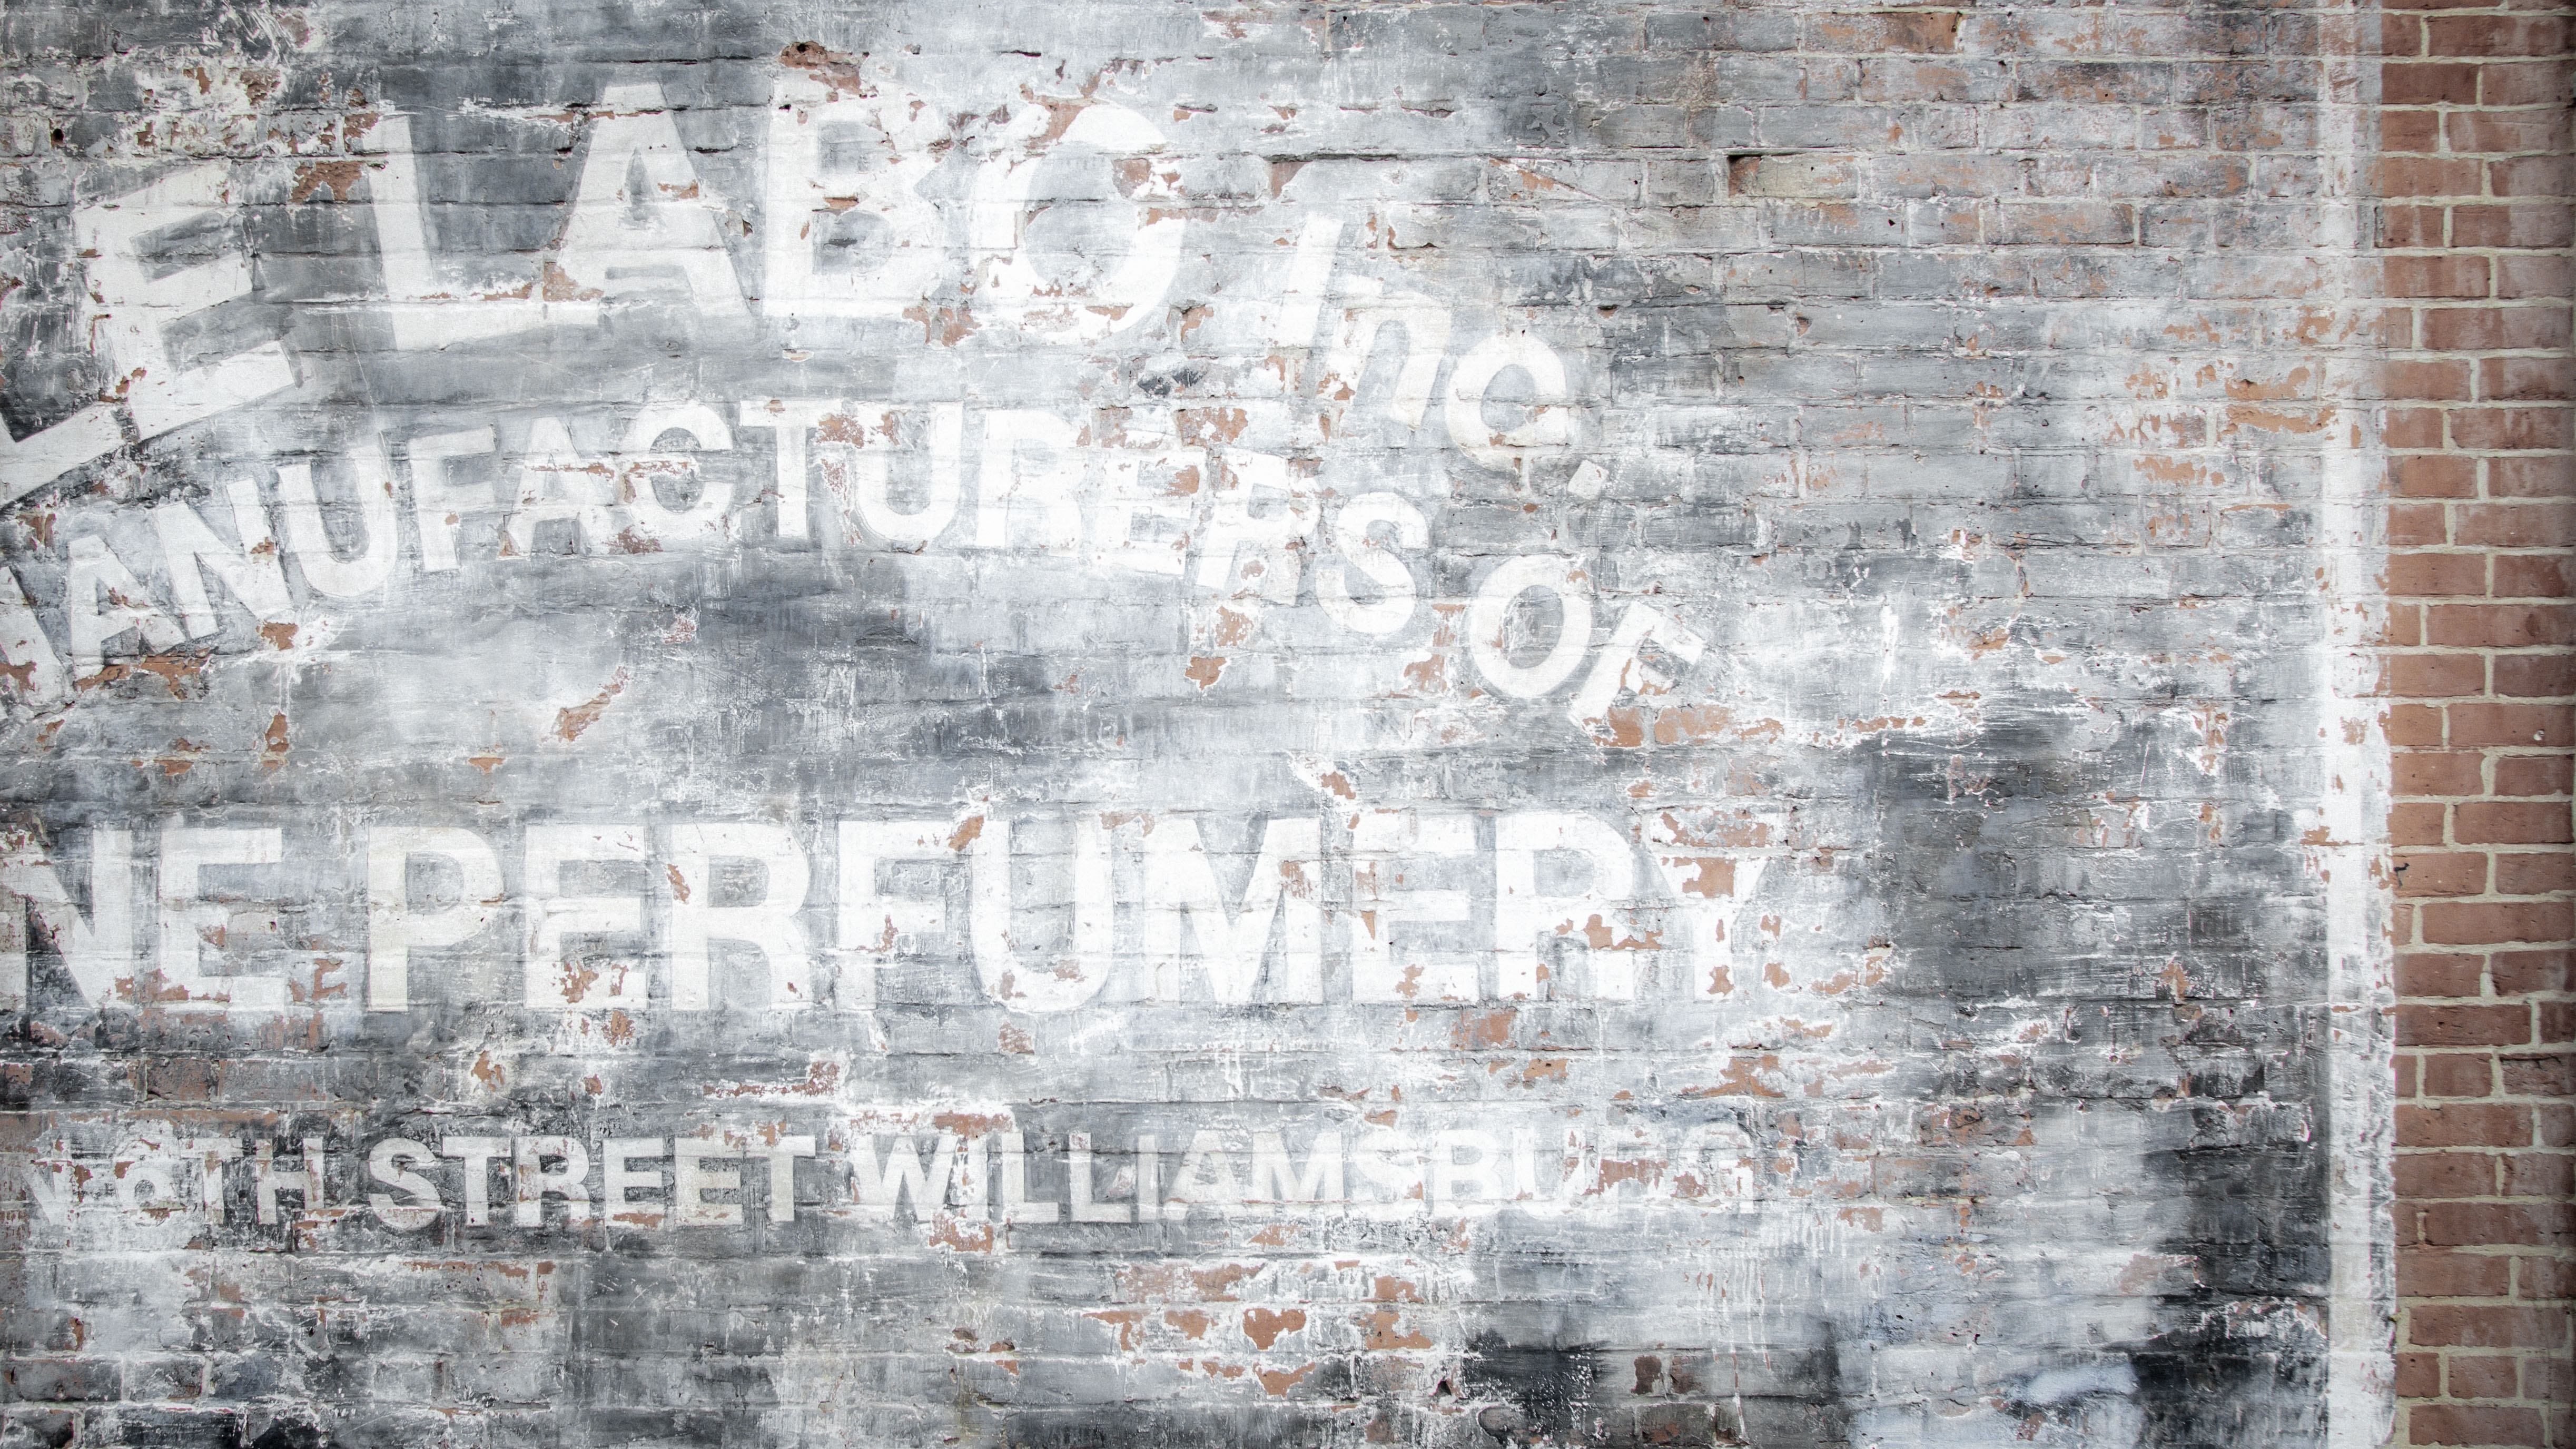 LE LABO Inc.
MANUFACTURERS OF
NE PERFUMERY
N 6TH STREET WILLIAMSBURG